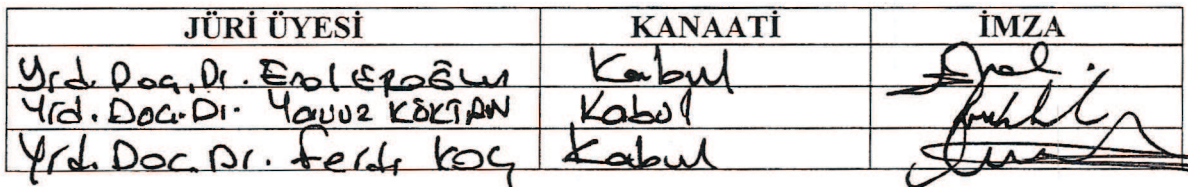 JÜRİ ÜYESİ KANAATİ İMZA
Yrd. Doç. Dr. Erol EROĞLU Kabul
Yrd. Doç. Dr. Yavuz KÖKTAN Kabul
Yrd. Doç. Dr. Ferdi KOÇ Kabul